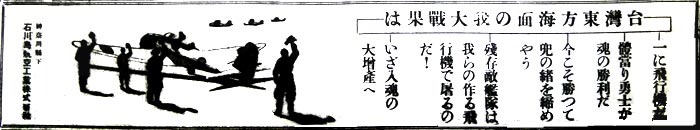 台灣東方海面の我大戰果は
一に飛行機と
體當り勇士が
魂の勝利だ
今こそ勝つて
兜の緒を締め
やう
殘存敵艦隊は
我らの作る飛
行機で屠るの
だ!
いざ入魂の
大增產へ
神奈川縣下
石川島航空工業株式會社